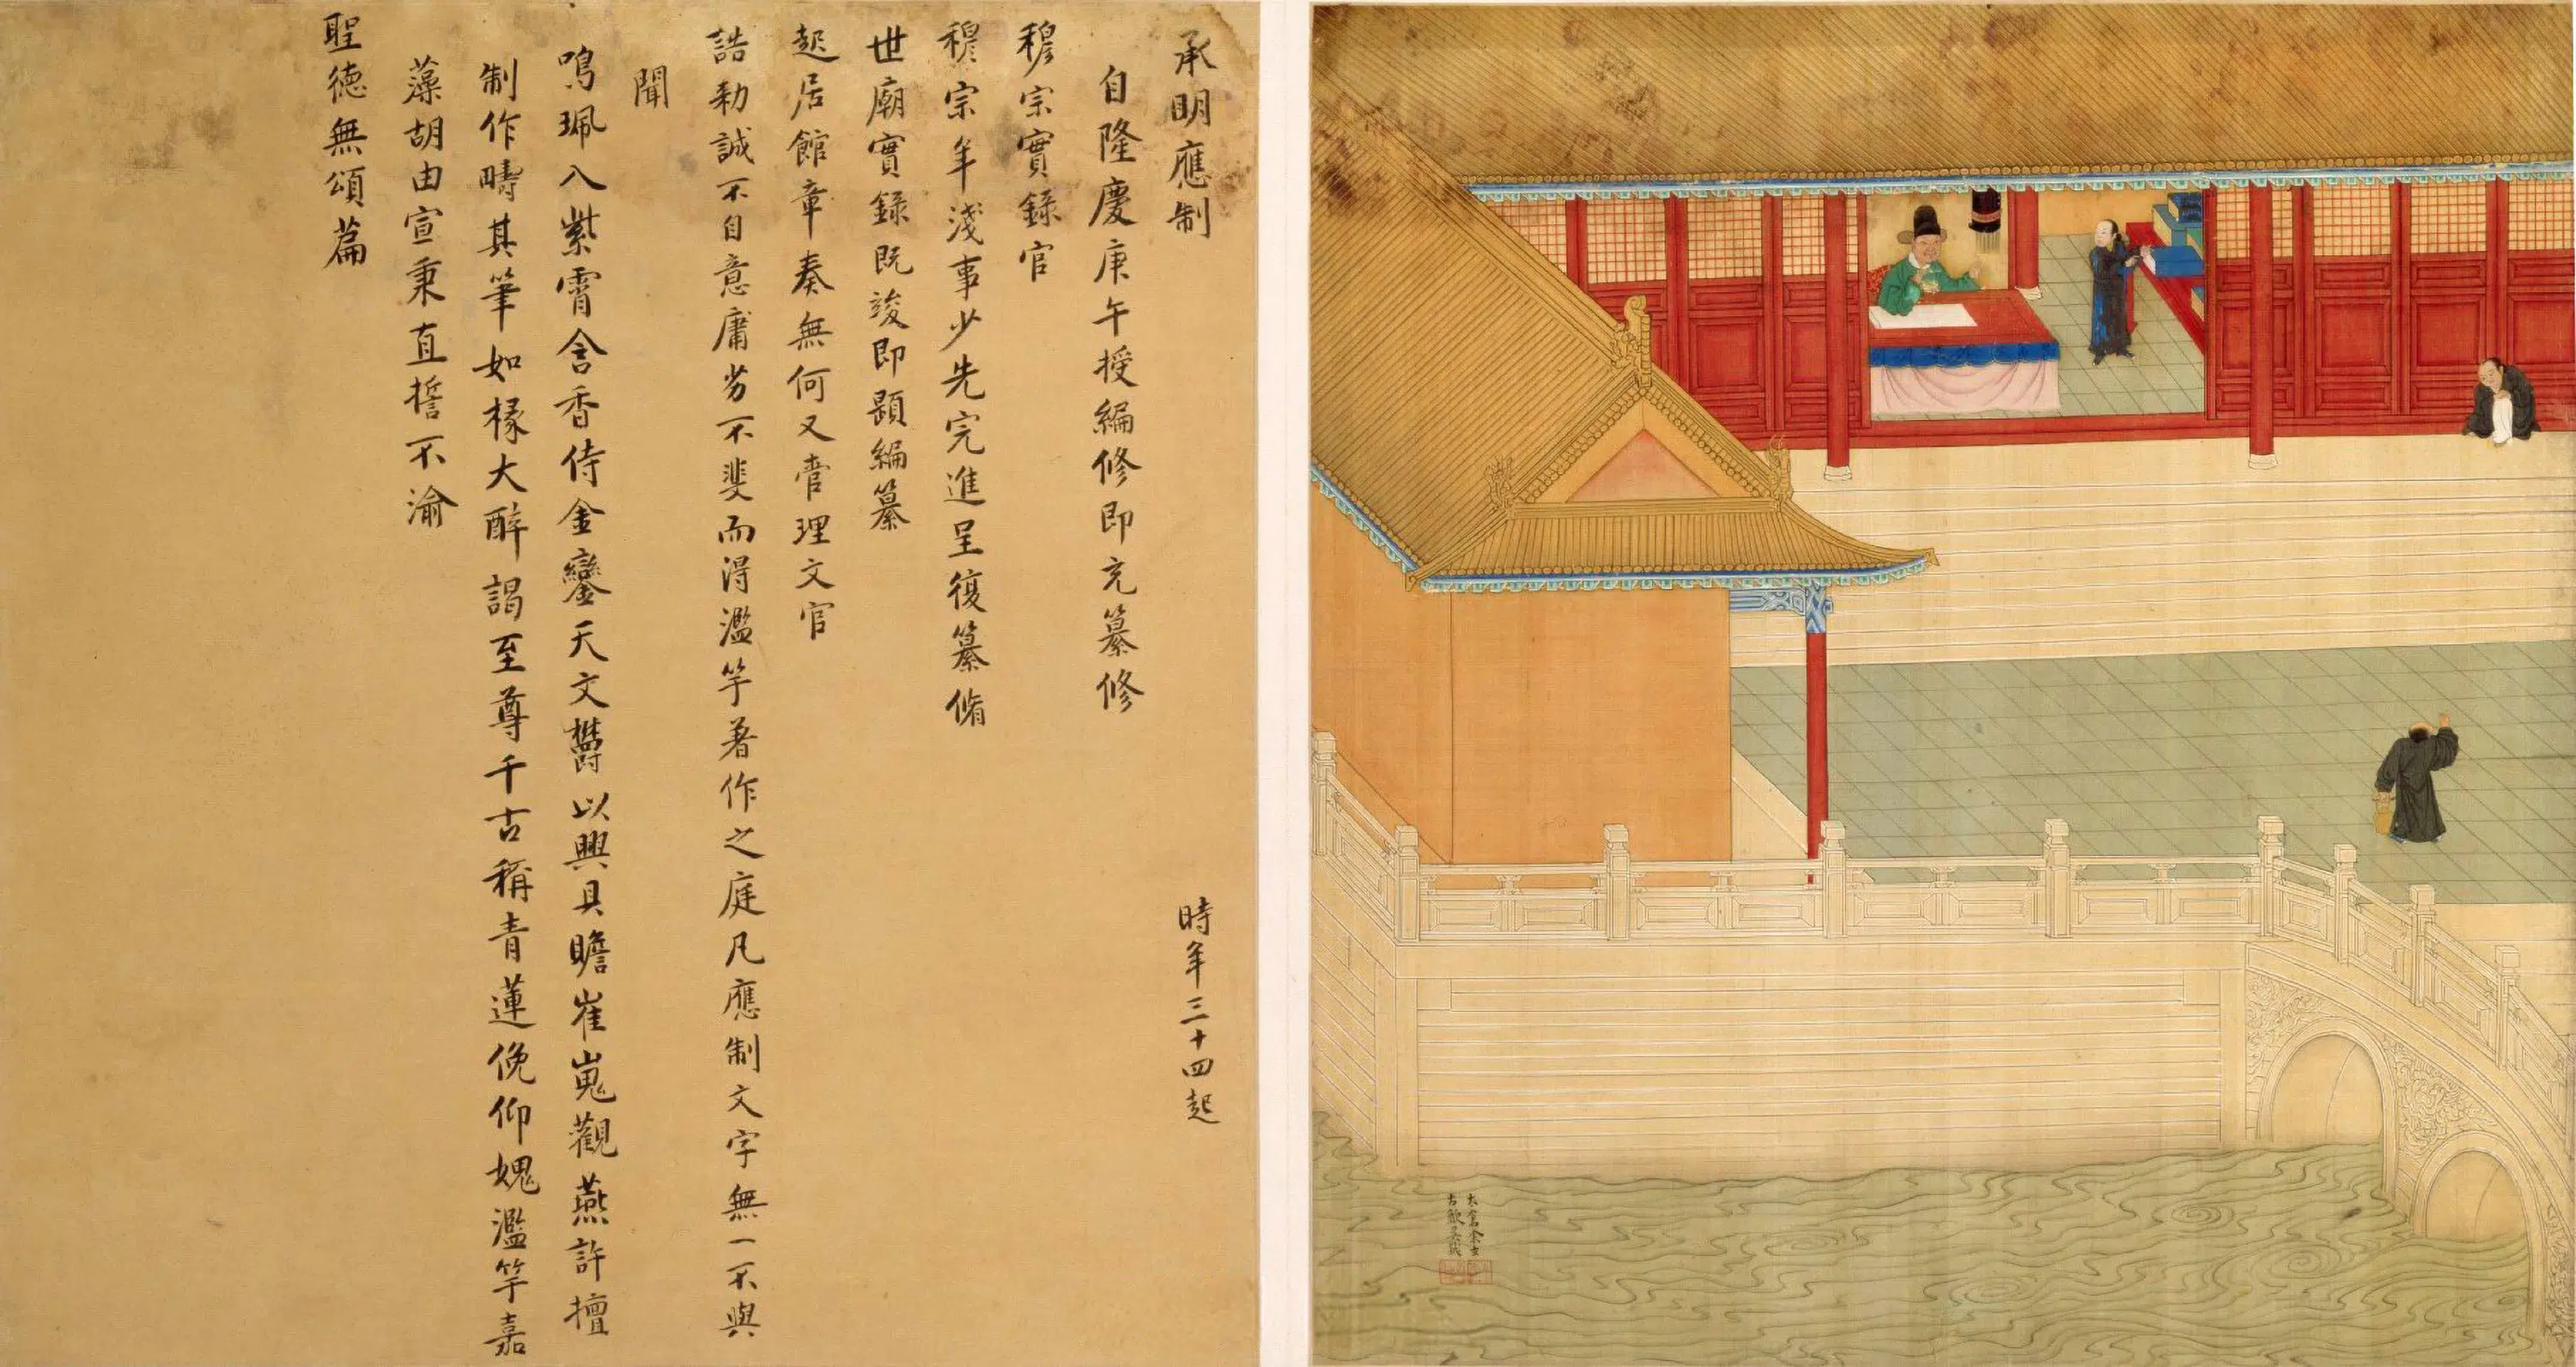 承明應制
時年三十四起
自隆慶庚午授編修即充纂修
穆宗實錄官
穆宗年淺事少先完進呈復纂脩
世廟實錄既竣即題編纂
起居館章奏無何又管理文官
誥勅誠不自意庸劣不斐而淂濫竽著作之庭凡應制文字無一不與
聞
鳴珮入紫霄含香侍金鑾天文欝以興具瞻崔嵬觀燕許擅
制作疇其筆如椽大醉謁至尊千古稱青蓮俛仰媿濫竽嘉
藻胡由宣秉直誓不渝
聖德無頌篇
太倉余士
吉歙吳鉞